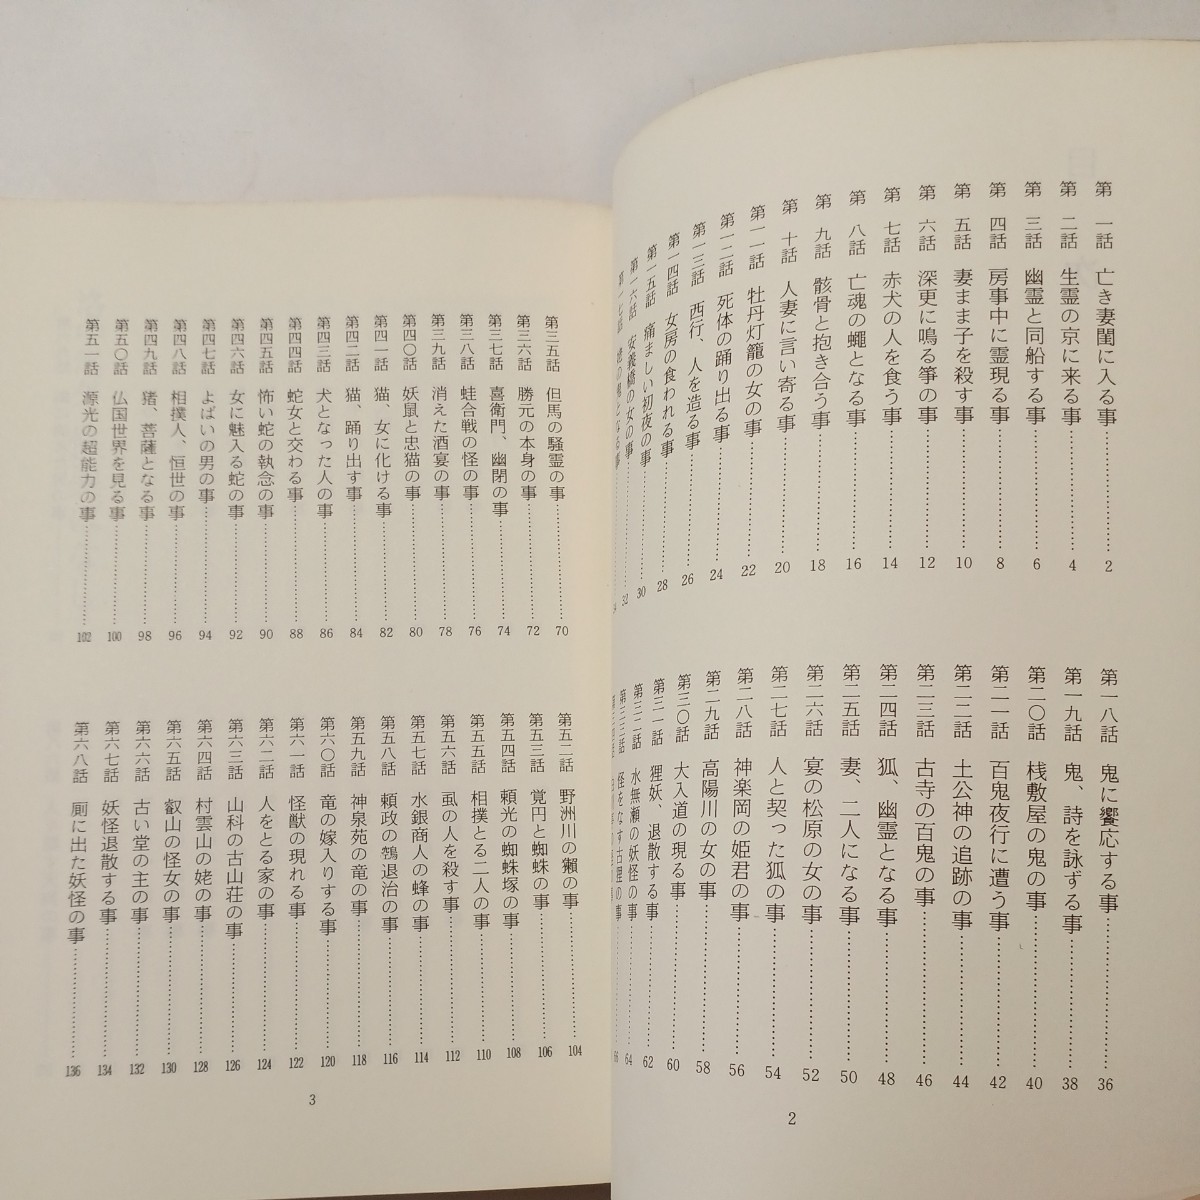 第一話 亡き妻閨に入る事 2
第二話 生霊の京に来る事 4
第三話 幽霊と同船する事 6
第四話 房事中に霊現る事 8
第五話 妻まま子を殺す事 10
第六話 深更に鳴る箏の事 12
第七話 赤犬の人を食う事 14
第八話 亡魂の蠅となる事 16
第九話 骸骨と抱き合う事 18
第十話 人妻に言い寄る事 20
第一一話 牡丹灯籠の女の事 22
第一二話 死体の踊り出る事 24
第一三話 西行、人を造る事 26
第一四話 女房の食われる事 28
第一五話 痛ましい初夜の事 30
第一六話 安義橋の女の事 32
第一七話
第一八話 鬼に饗応する事 36
第一九話 鬼、詩を詠ずる事 38
第二〇話 桟敷屋の鬼の事 40
第二一話 百鬼夜行に遭う事 42
第二二話 土公神の追跡の事 44
第二三話 古寺の百鬼の事 46
第二四話 狐、幽霊となる事 48
第二五話 妻、二人になる事 50
第二六話 宴の松原の女の事 52
第二七話 人と契った狐の事 54
第二八話 神楽岡の姫君の事 56
第二九話 高陽川の女の事 58
第三〇話 大入道の現る事 60
第三一話 狸妖、退散する事 62
第三二話 水無瀬の妖怪の事 64
第三三話 怪をなす古狸の事 66
2
第三五話 但馬の騒霊の事 70
第三六話 勝元の本身の事 72
第三七話 喜衛門、幽閉の事 74
第三八話 蛙合戦の怪の事 76
第三九話 消えた酒宴の事 78
第四〇話 妖鼠と忠猫の事 80
第四一話 猫、女に化ける事 82
第四二話 猫、踊り出す事 84
第四三話 犬となった人の事 86
第四四話 蛇女と交わる事 88
第四五話 怖い蛇の執念の事 90
第四六話 女に魅入る蛇の事 92
第四七話 よばいの男の事 94
第四八話 相撲人、恒世の事 96
第四九話 猪、菩薩となる事 98
第五〇話 仏国世界を見る事 100
第五一話 源光の超能力の事 102
第五二話 野洲川の獺の事 104
第五三話 覚円と蜘蛛の事 106
第五四話 頼光の蜘蛛塚の事 108
第五五話 相撲とる二人の事 110
第五六話 虱の人を殺す事 112
第五七話 水銀商人の蜂の事 114
第五八話 頼政の鵼退治の事 116
第五九話 神泉苑の竜の事 118
第六〇話 竜の嫁入りする事 120
第六一話 怪獣の現れる事 122
第六二話 人をとる家の事 124
第六三話 山科の古山荘の事 126
第六四話 村雲山の姥の事 128
第六五話 叡山の怪女の事 130
第六六話 古い堂の主の事 132
第六七話 妖怪退散する事 134
第六八話 厠に出た妖怪の事 136
3